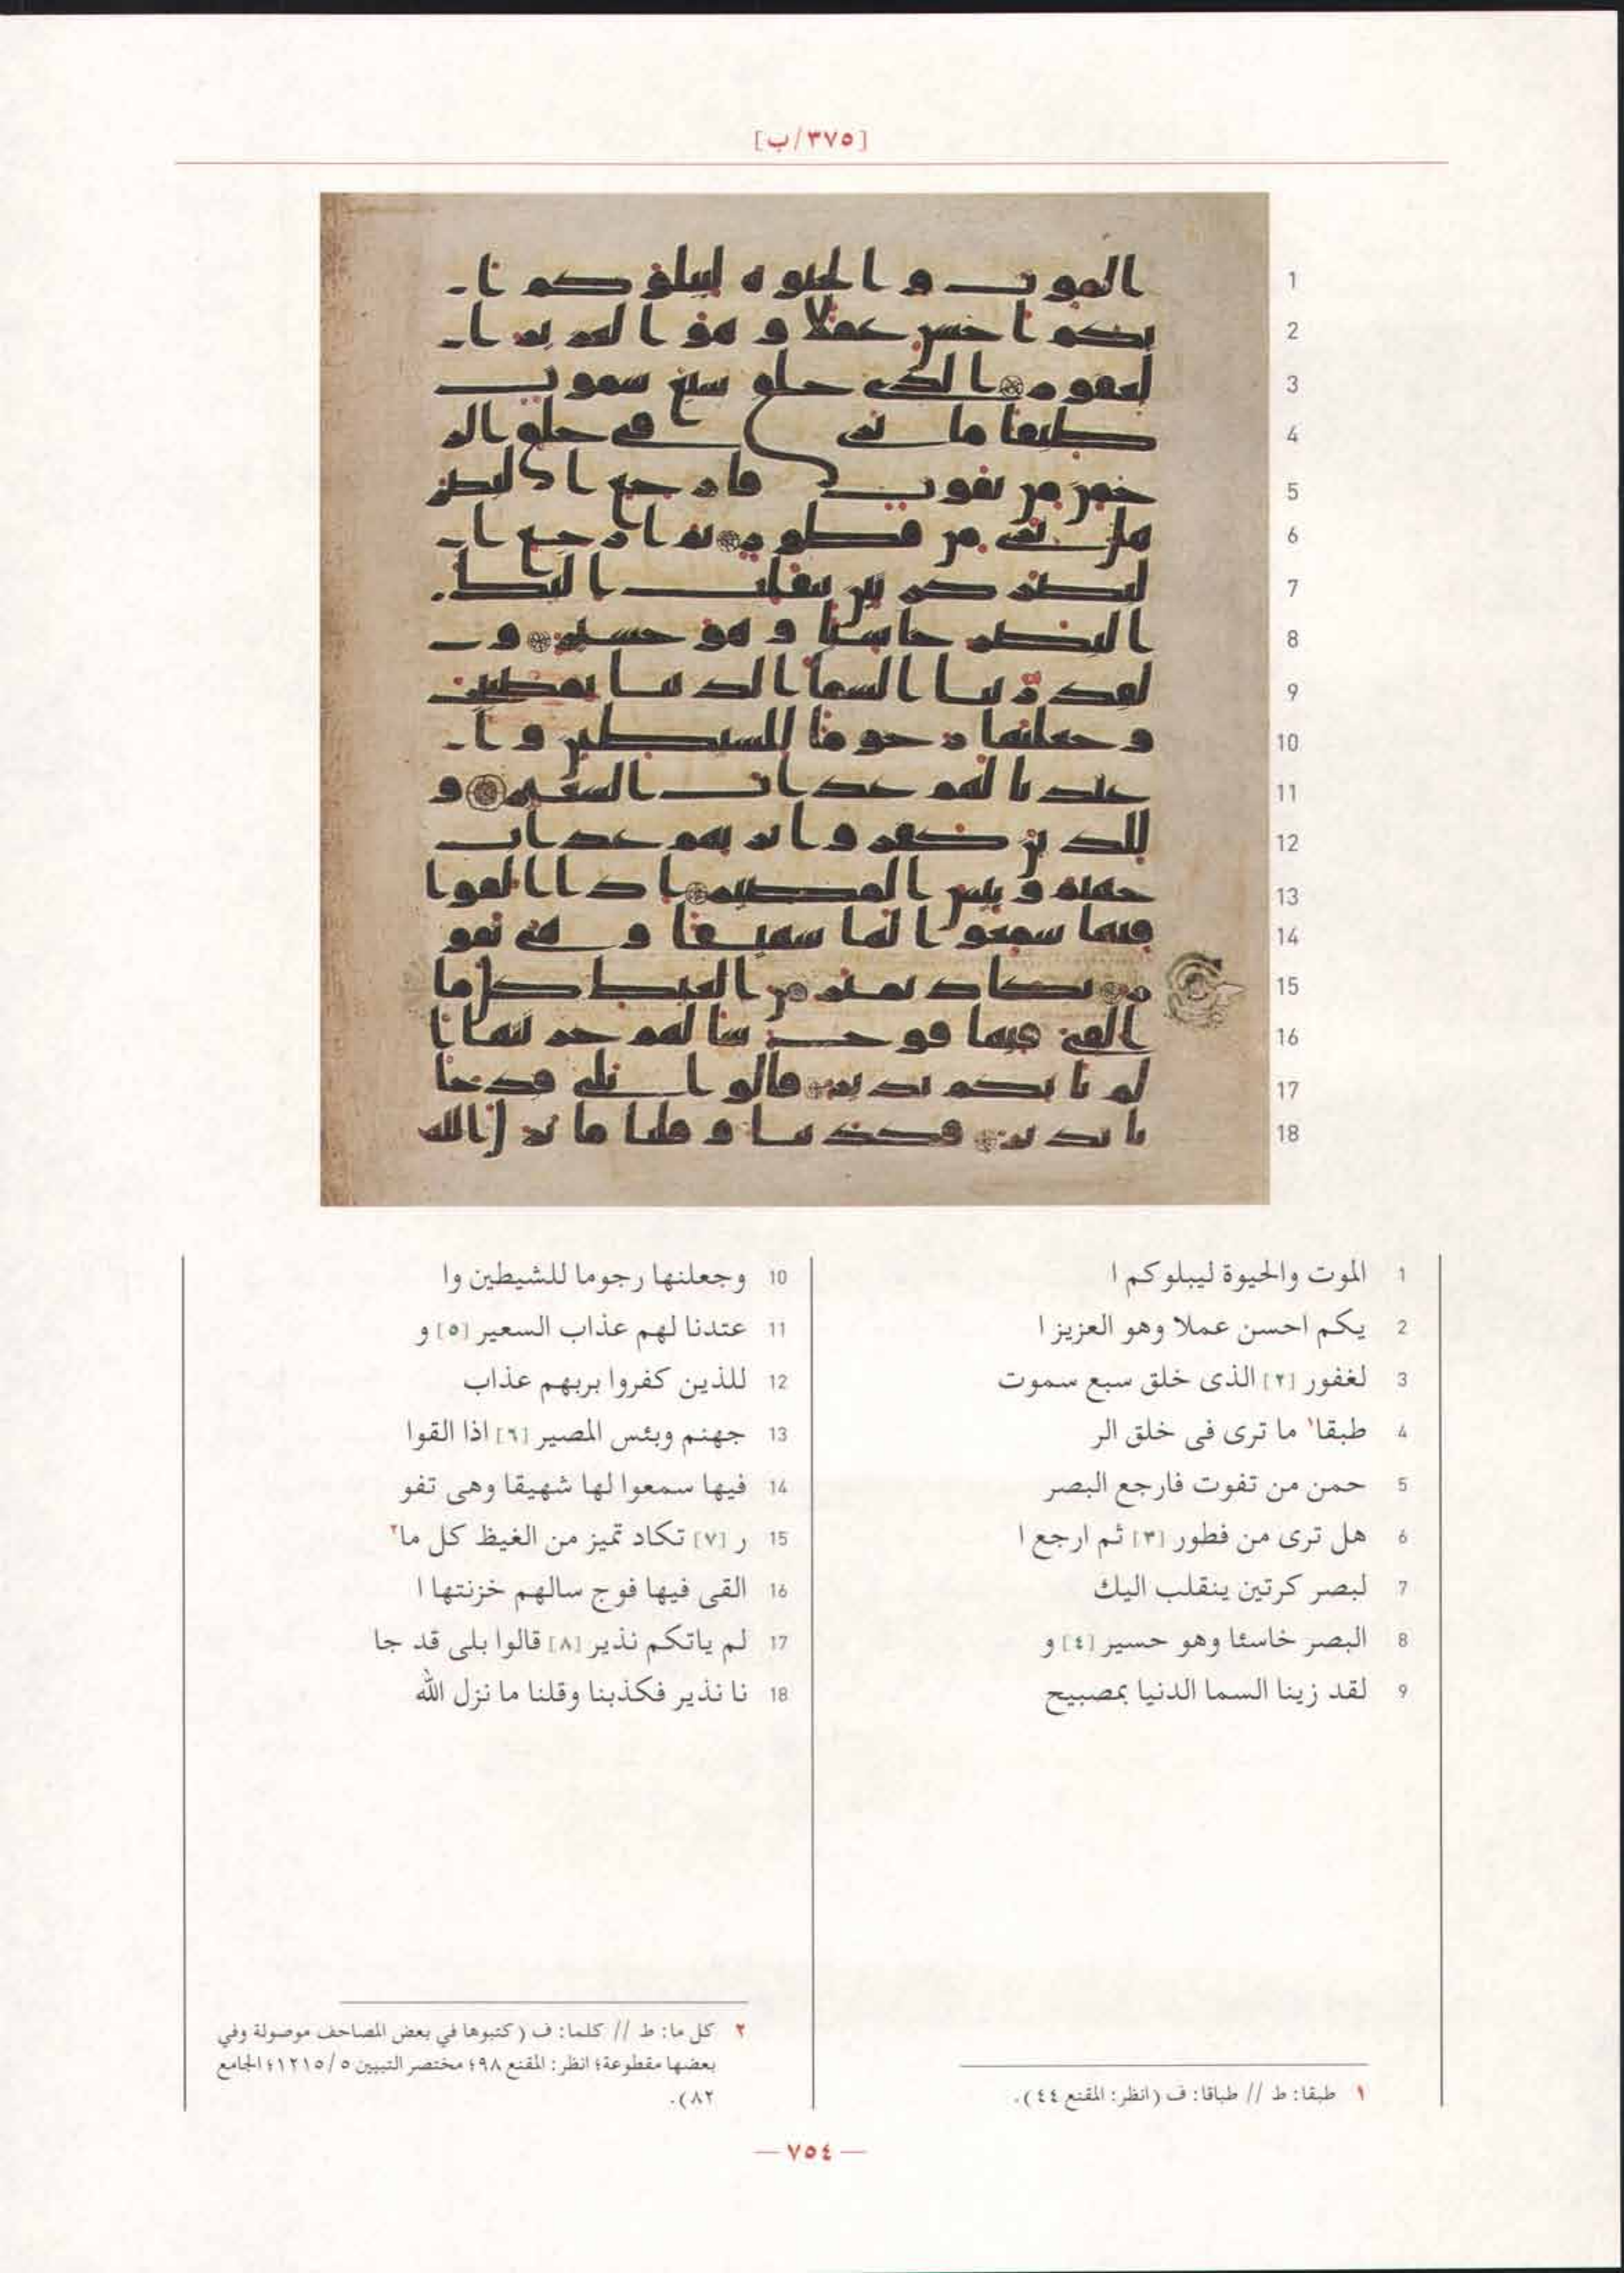 [٣٧٥/ب]
1 الموت والحيوة ليبلوكم ا
2 يكم احسن عملا وهو العزيز ا
3 لغفور [٢] الذى خلق سبع سموت
4 طبقا١ ما ترى فى خلق الر
5 حمن من تفوت فارجع البصر
6 هل ترى من فطور [٣] ثم ارجع ا
7 لبصر كرتين ينقلب اليك
8 البصر خاسئا وهو حسير [٤] و
9 لقد زينا السما الدنيا بمصبيح
10 وجعلنها رجوما للشيطين وا
11 عتدنا لهم عذاب السعير [٥] و
12 للذين كفروا بربهم عذاب
13 جهنم وبئس المصير [٦] اذا القوا
14 فيها سمعوا لها شهيقا وهى تفو
15 ر [٧] تكاد تميز من الغيظ كل ما٢
16 القى فيها فوج سالهم خزنتها ا
17 لم ياتكم نذير [٨] قالوا بلى قد جا
18 نا نذير فكذبنا وقلنا ما نزل الله
١ طبقا: ط // طباقا: ف (انظر: المقنع ٤٤).
٢ كل ما: ط // كلما: ف (كتبوها في بعض المصاحف موصولة وفي
بعضها مقطوعة؛ انظر: المقنع ٩٨؛ مختصر التبيين ٥/١٢١٥؛ الجامع
٨٢).
— ٧٥٤ —